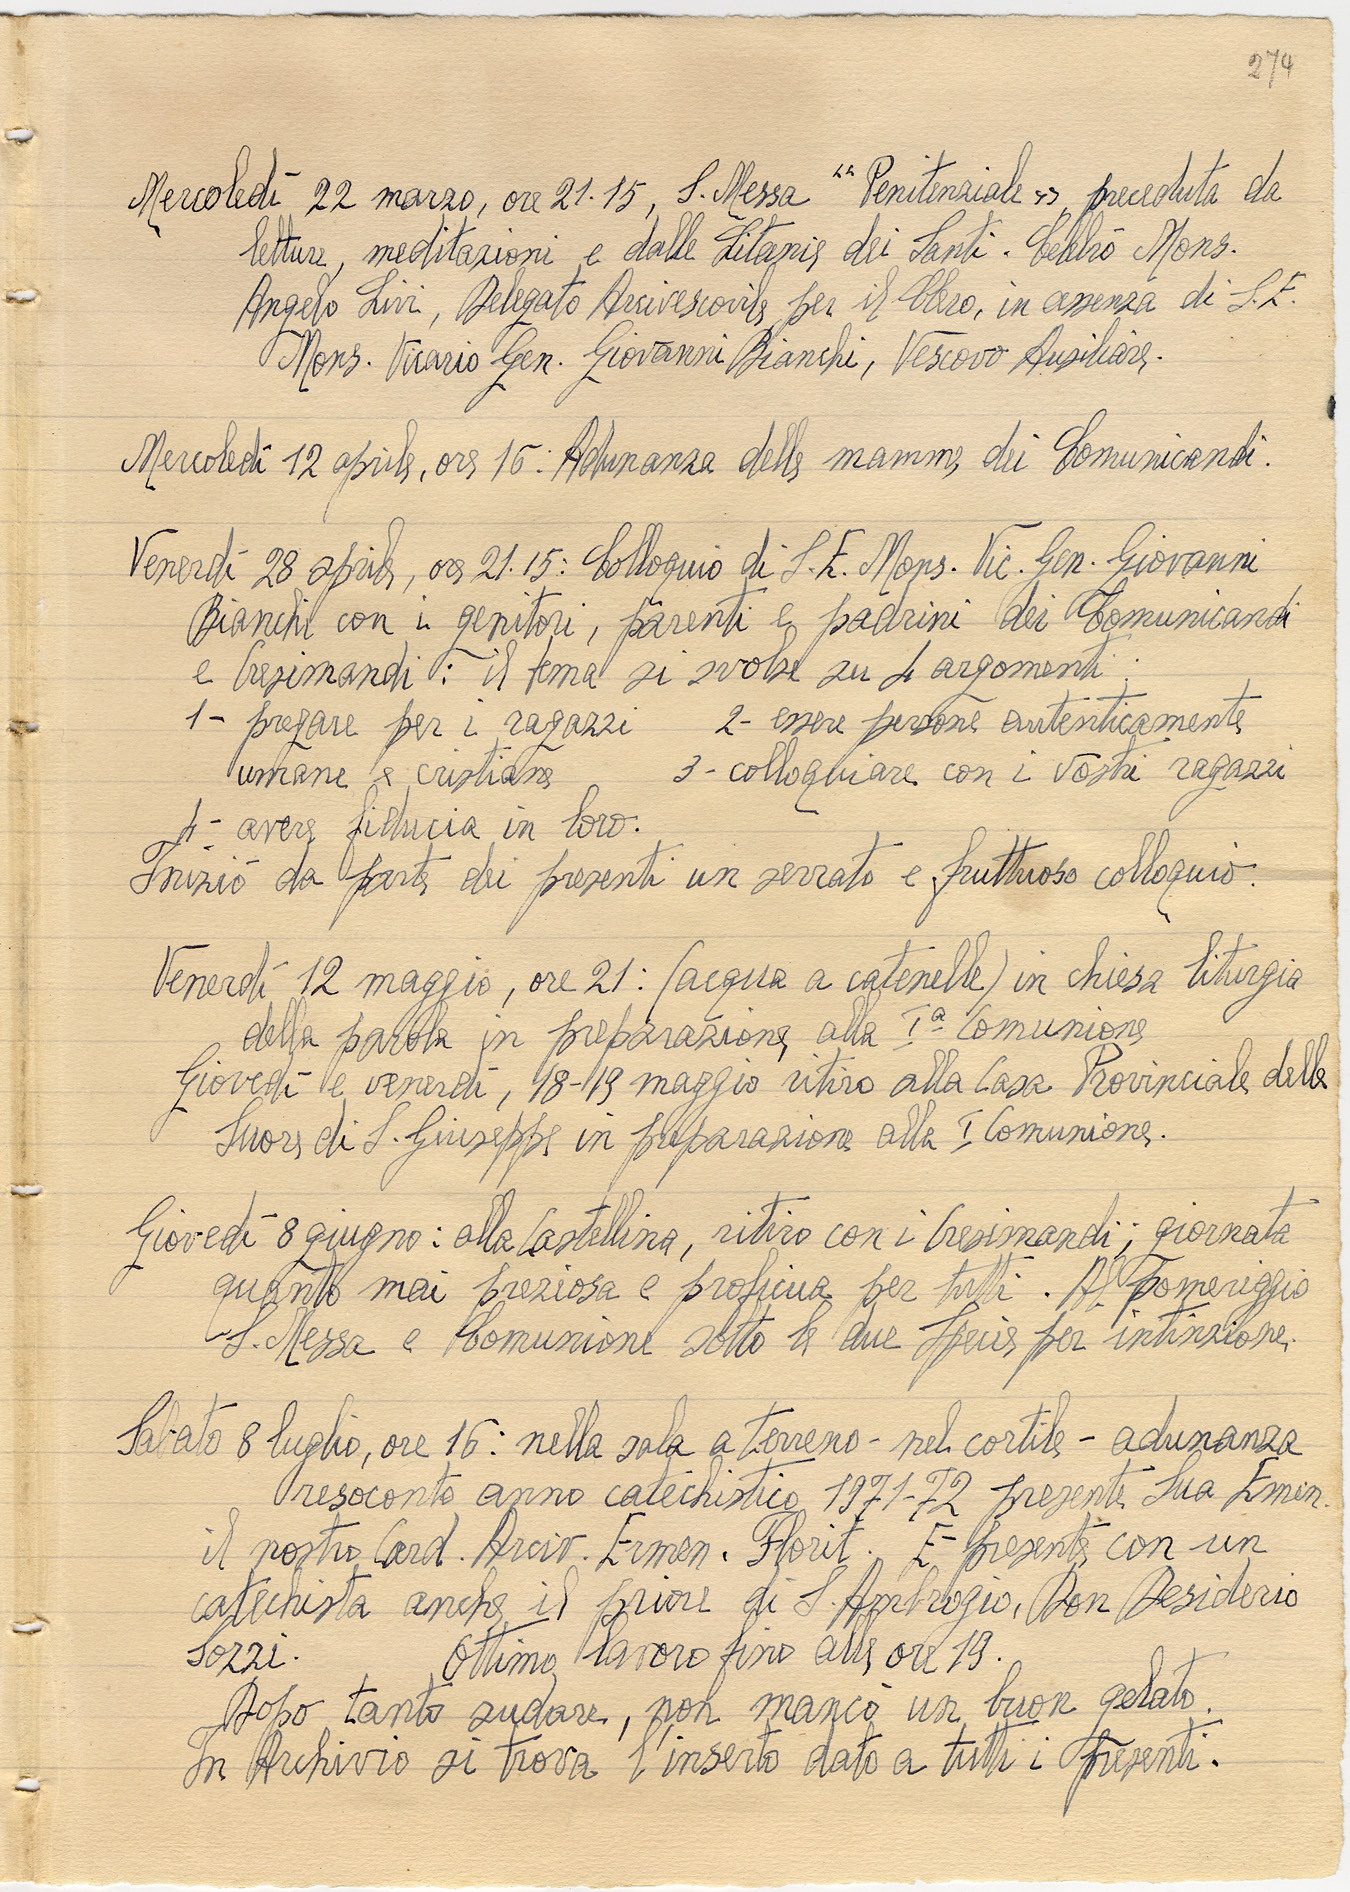 274
Mercoledì 22 marzo, ore 21.15, S. Messa “Penitenziale”, preceduta da
letture, meditazioni e dalle Litanie dei Santi. Celebrò Mons.
Angelo Livi, Delegato Arcivescovile per il Clero, in assenza di S.E.
Mons. Vicario Gen. Giovanni Bianchi, Vescovo Ausiliare.
Mercoledì 12 aprile, ore 16: Adunanza delle mamme dei Comunicandi.
Venerdì 28 aprile, ore 21.15: Colloquio di S.E. Mons. Vic. Gen. Giovanni
Bianchi con i genitori, parenti e padrini dei Comunicandi
e Cresimandi: il tema si svolse su 4 argomenti:
1- pregare per i ragazzi 2- essere persone autenticamente
umane e cristiane 3- colloquiare con i vostri ragazzi
4- avere fiducia in loro.
Iniziò da parte dei presenti un serrato e fruttuoso colloquio.
Venerdì 12 maggio, ore 21: (acqua a catenelle) in chiesa liturgia
della parola in preparazione alla Iª Comunione
Giovedì e venerdì, 18-19 maggio ritiro alla Casa Provinciale delle
Suore di S. Giuseppe in preparazione alla I Comunione.
Giovedì 8 giugno: alla Castellina, ritiro con i Cresimandi; giornata
quanto mai preziosa e proficua per tutti. Al pomeriggio
S. Messa e Comunione sotto le due Specie per intinzione.
Sabato 8 luglio, ore 16: nella sala a terreno - nel cortile - adunanza
resoconto anno catechistico 1971-72 presente Sua Emin.
il nostro Card. Arciv. Ermen. Florit. E' presente con un
catechista anche il priore di S. Ambrogio, Don Desiderio
Sozzi. Ottimo lavoro fino alle ore 19.
Dopo tanto sudare, non mancò un buon gelato.
In Archivio si trova l'inserto dato a tutti i presenti.